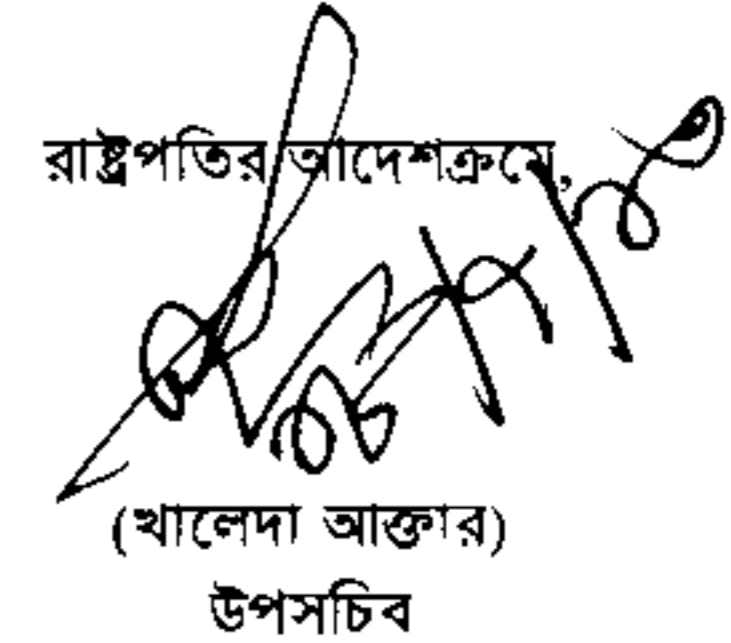 রাষ্ট্রপতির আদেশক্রমে,
(খালেদা আক্তার)
উপসচিব